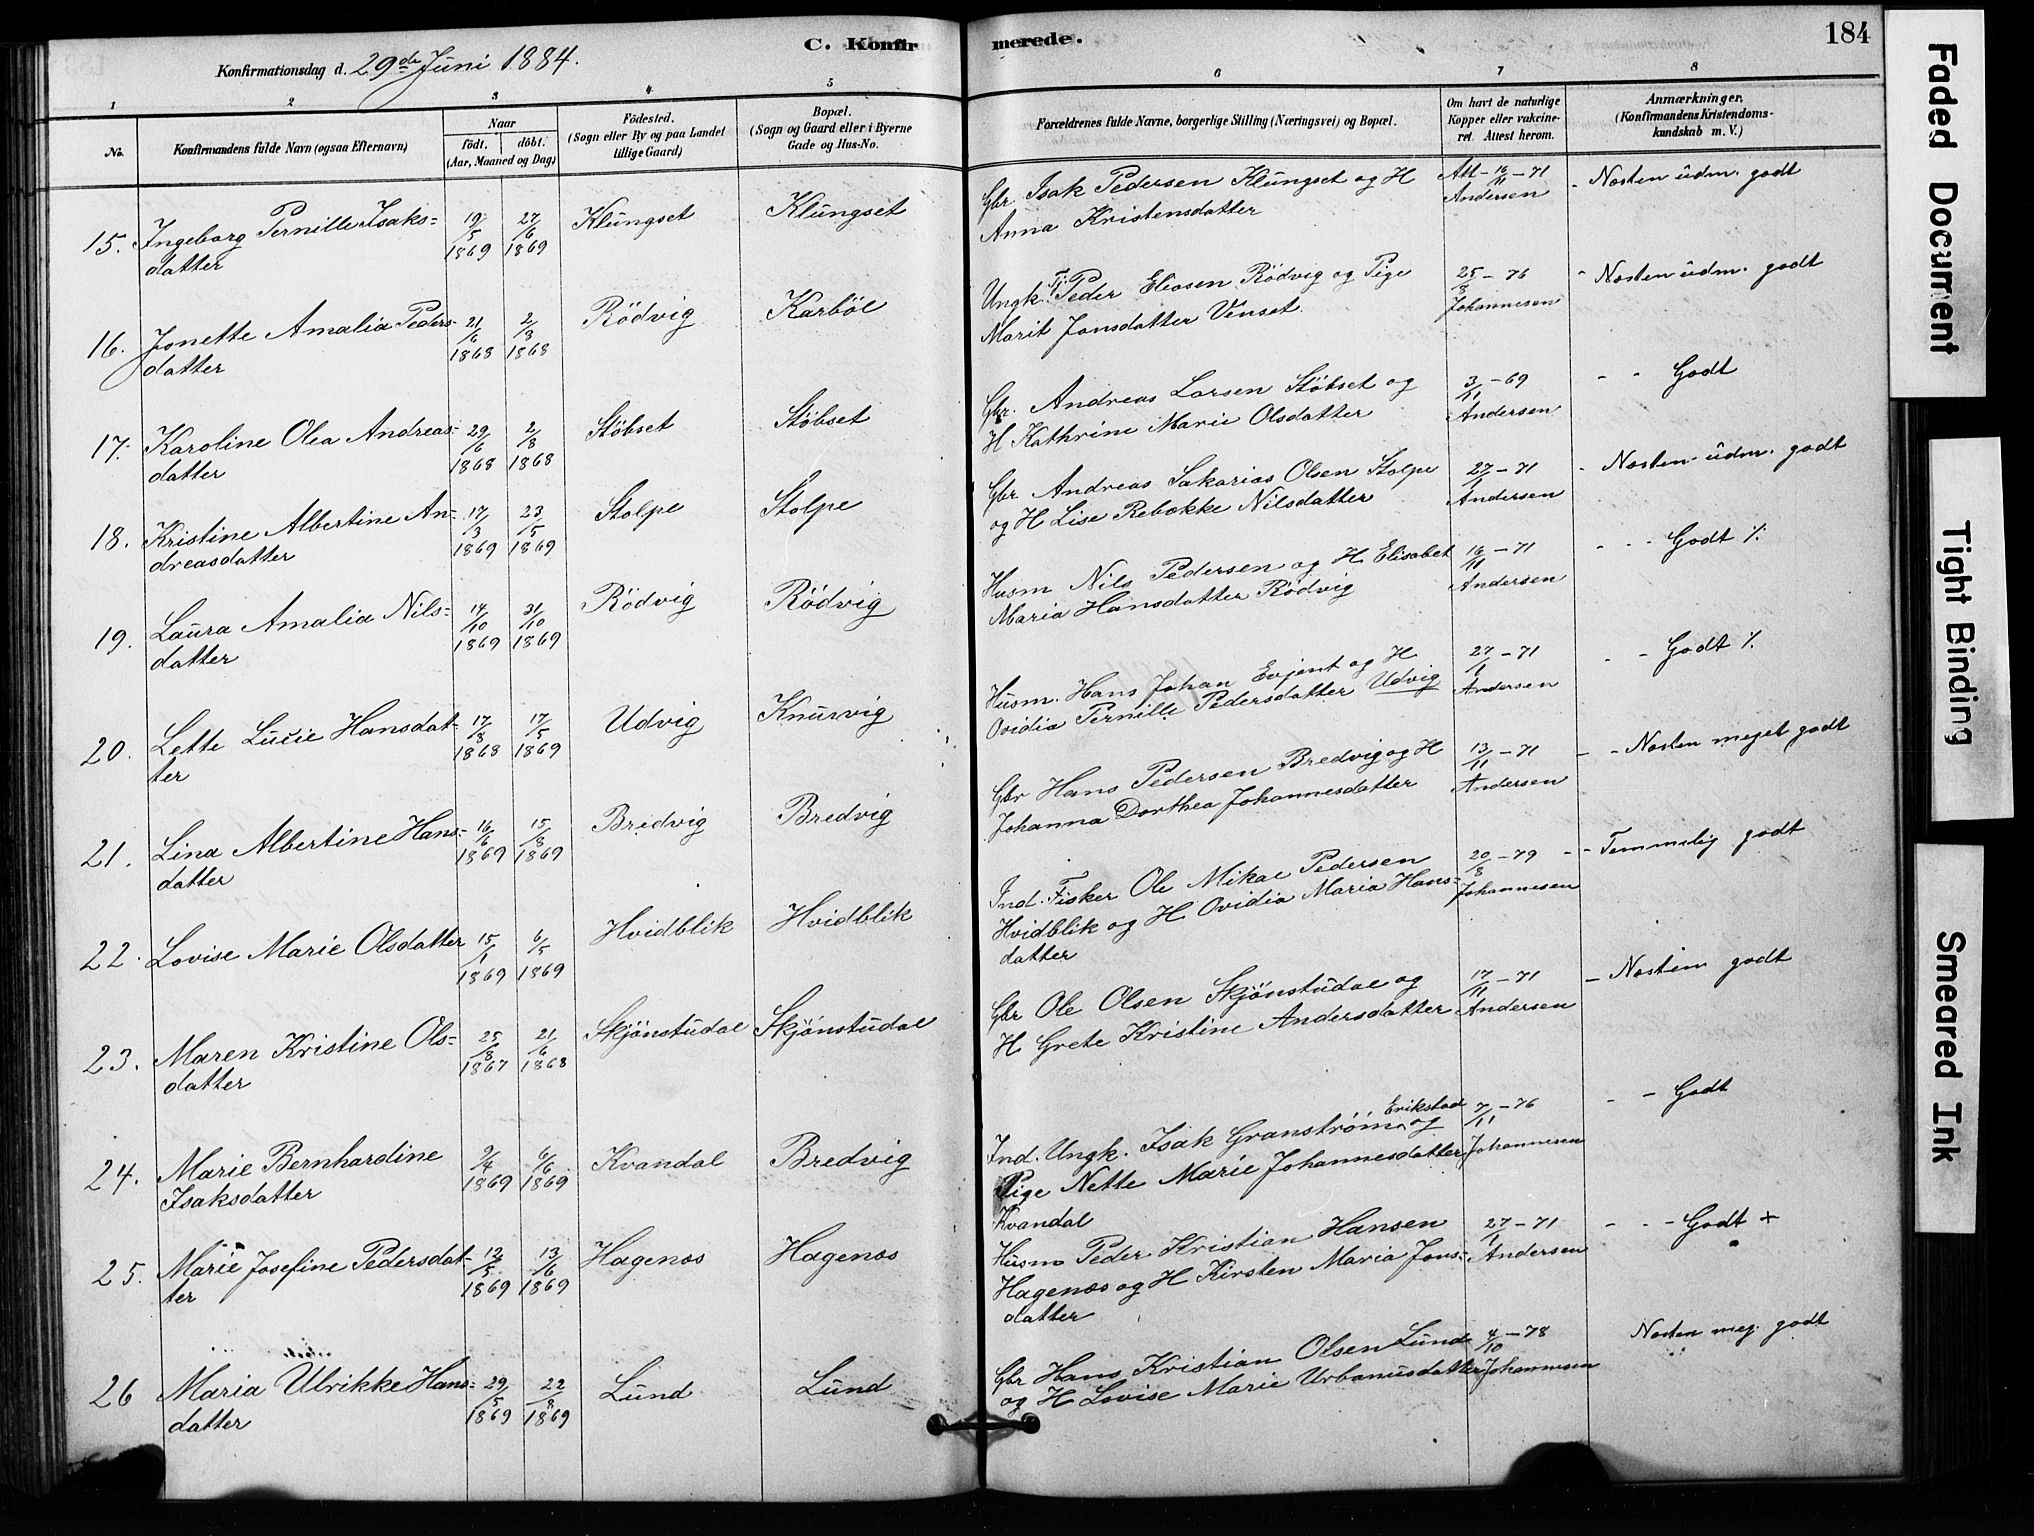 C. Konfirmerede.
184
Konfirmationsdag d. 29de Juni 1884.
1 2 3 4 5 6 7 8
No.
Konfirmandens fulde Navn (ogsaa Efternavn)
Naar
født. døbt.
(Aar, Maaned og Dag)
Födested.
(Sogn eller By og paa Landet
tillige Gaard)
Bopæl.
(Sogn og Gaard eller i Byerne
Gade og Hus-No.
Forældrenes fulde Navne, borgerlige Stilling (Næringsvei) og Bopæl.
Om havt de naturlige
Kopper eller vakcine-
ret. Attest herom.
Anmærkninger.
(Konfirmandens Kristendoms-
kundskab m. V.)
15. Ingeborg Pernille Isaks-
datter
19/5 1869
27/6 1869
Klungset
Klungset
Gbr Isak Pedersen Klungset og H
Anna Kristensdatter
Att - 16/11 - 71
Andersen
- Næsten udm. godt
16. Jonette Amalia Peders-
datter
21/6 1868
2/8 1868
Rödvig
Karböl
Ungk. Tj. Peder Eliasen Rödvig og Pige
Marit Jonsdatter Venset
25/8 - 76
Johannesen
" Næsten udm. godt
17. Karoline Olea Andreas-
datter
29/6 1868
2/8 1868
Stöbset
Stöbset
Gbr. Andreas Larsen Stöbset og
H Kathrine Marie Olsdatter
3/11 - 69
Andersen
- - Godt
18. Kristine Albertine An-
dreasdatter
17/3 1869
23/5 1869
Stolpe
Stolpe
Gbr Andreas Sakarias Olsen Stolpe
og H Lise Rebekke Nilsdatter
27/1 - 71
Andersen
- Næsten udm. godt
19. Laura Amalia Nils-
datter
14/10 1869
31/10 1869
Rödvig
Rödvig
Husm Nils Pedersen og H Elisabet
Maria Hansdatter Rödvig
16/11 - 71
Andersen
- - - Godt %
20. Lette Lucie Hansdat-
ter
17/8 1868
17/5 1869
Udvig
Knurvig
Husm. Hans Johan Evjent og H
Ovidia Pernille Pedersdatter Udvig
27/1 - 71
Andersen
- - Godt %
21. Lina Albertine Hans-
datter
16/6 1869
15/8 1869
Bredvig
Bredvig
Gbr Hans Pedersen Bredvig og H
Johanna Dorthea Johannesdatter
13/11 - 71
Andersen
- - Næsten meget godt
22. Lovise Marie Olsdatter
15/1 1869
6/5 1869
Hvidblik
Hvidblik
Ind. Fisker Ole Mikal Pedersen
Hvidblik og H Ovidia Maria Hans-
datter
20/8 - 79
Johannesen
- - Temmelig godt
23. Maren Kristine Ols-
datter
25/8 1867
21/6 1868
Skjönstudal
Skjönstudal
Gbr Ole Olsen Skjönstudal og
H Grete Kristine Andersdatter
17/11 - 71
Andersen
- Næsten godt
24. Marie Bernhardine
Isaksdatter
9/4 1869
6/6 1869
Kvandal
Bredvig
Ind. Ungk. Isak Granstrøm Erikstad og
Pige Nette Marie Johannesdatter
Kvandal
7/11 - 76
Johannesen
- - Godt
25. Marie Josefine Pedersdat-
ter
12/5 1869
13/6 1869
Hagenæs
Hagenæs
Husm Peder Kristian Hansen
Hagenæs og H Kirsten Maria Jons-
datter
27/1 - 71
Andersen
- - - Godt +
26 Maria Ulrikke Hans-
datter
29/5 1869
22/8 1869
Lund
Lund
Gbr Hans Kristian Olsen Lund
og H Lovise Marie Urbanusdatter
4/10 - 78
Johannesen
Næsten meg. godt
Faded Document
Tight Binding
Smeared Ink